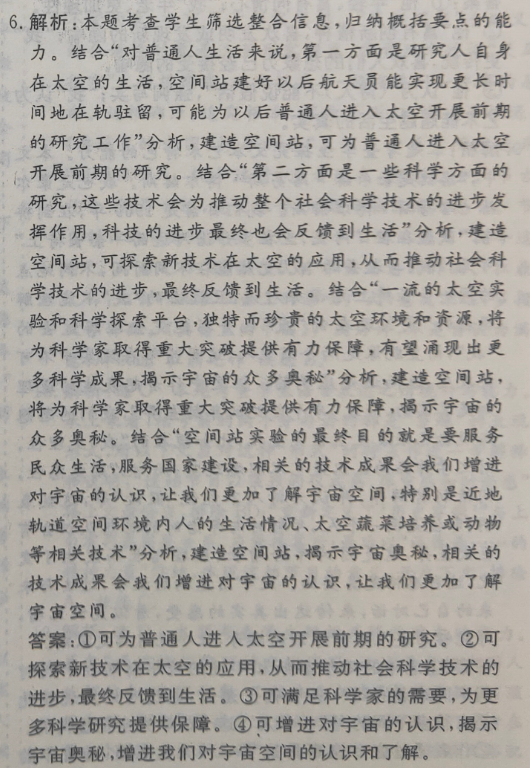 6.解析:本题考查学生筛选整合信息,归纳概括要点的能
力。结合“对普通人生活来说,第一方面是研究人自身
在太空的生活,空间站建好以后航天员能实现更长时
间地在轨驻留,可能为以后普通人进入太空开展前期
的研究工作”分析,建造空间站,可为普通人进入太空
开展前期的研究。结合“第二方面是一些科学方面的
研究,这些技术会为推动整个社会科学技术的进步发
挥作用,科技的进步最终也会反馈到生活”分析,建造
空间站,可探索新技术在太空的应用,从而推动社会科
学技术的进步,最终反馈到生活。结合“一流的太空实
验和科学探索平台,独特而珍贵的太空环境和资源,将
为科学家取得重大突破提供有力保障,有望涌现出更
多科学成果,揭示宇宙的众多奥秘”分析,建造空间站,
将为科学家取得重大突破提供有力保障,揭示宇宙的
众多奥秘。结合“空间站实验的最终目的就是要服务
民众生活,服务国家建设,相关的技术成果会我们增进
对宇宙的认识,让我们更加了解宇宙空间,特别是近地
轨道空间环境内人的生活情况、太空蔬菜培养或动物
等相关技术”分析,建造空间站,揭示宇宙奥秘,相关的
技术成果会我们增进对宇宙的认识,让我们更加了解
宇宙空间。
答案:①可为普通人进入太空开展前期的研究。②可
探索新技术在太空的应用,从而推动社会科学技术的
进步,最终反馈到生活。③可满足科学家的需要,为更
多科学研究提供保障。④可增进对宇宙的认识,揭示
宇宙奥秘,增进我们对宇宙空间的认识和了解。